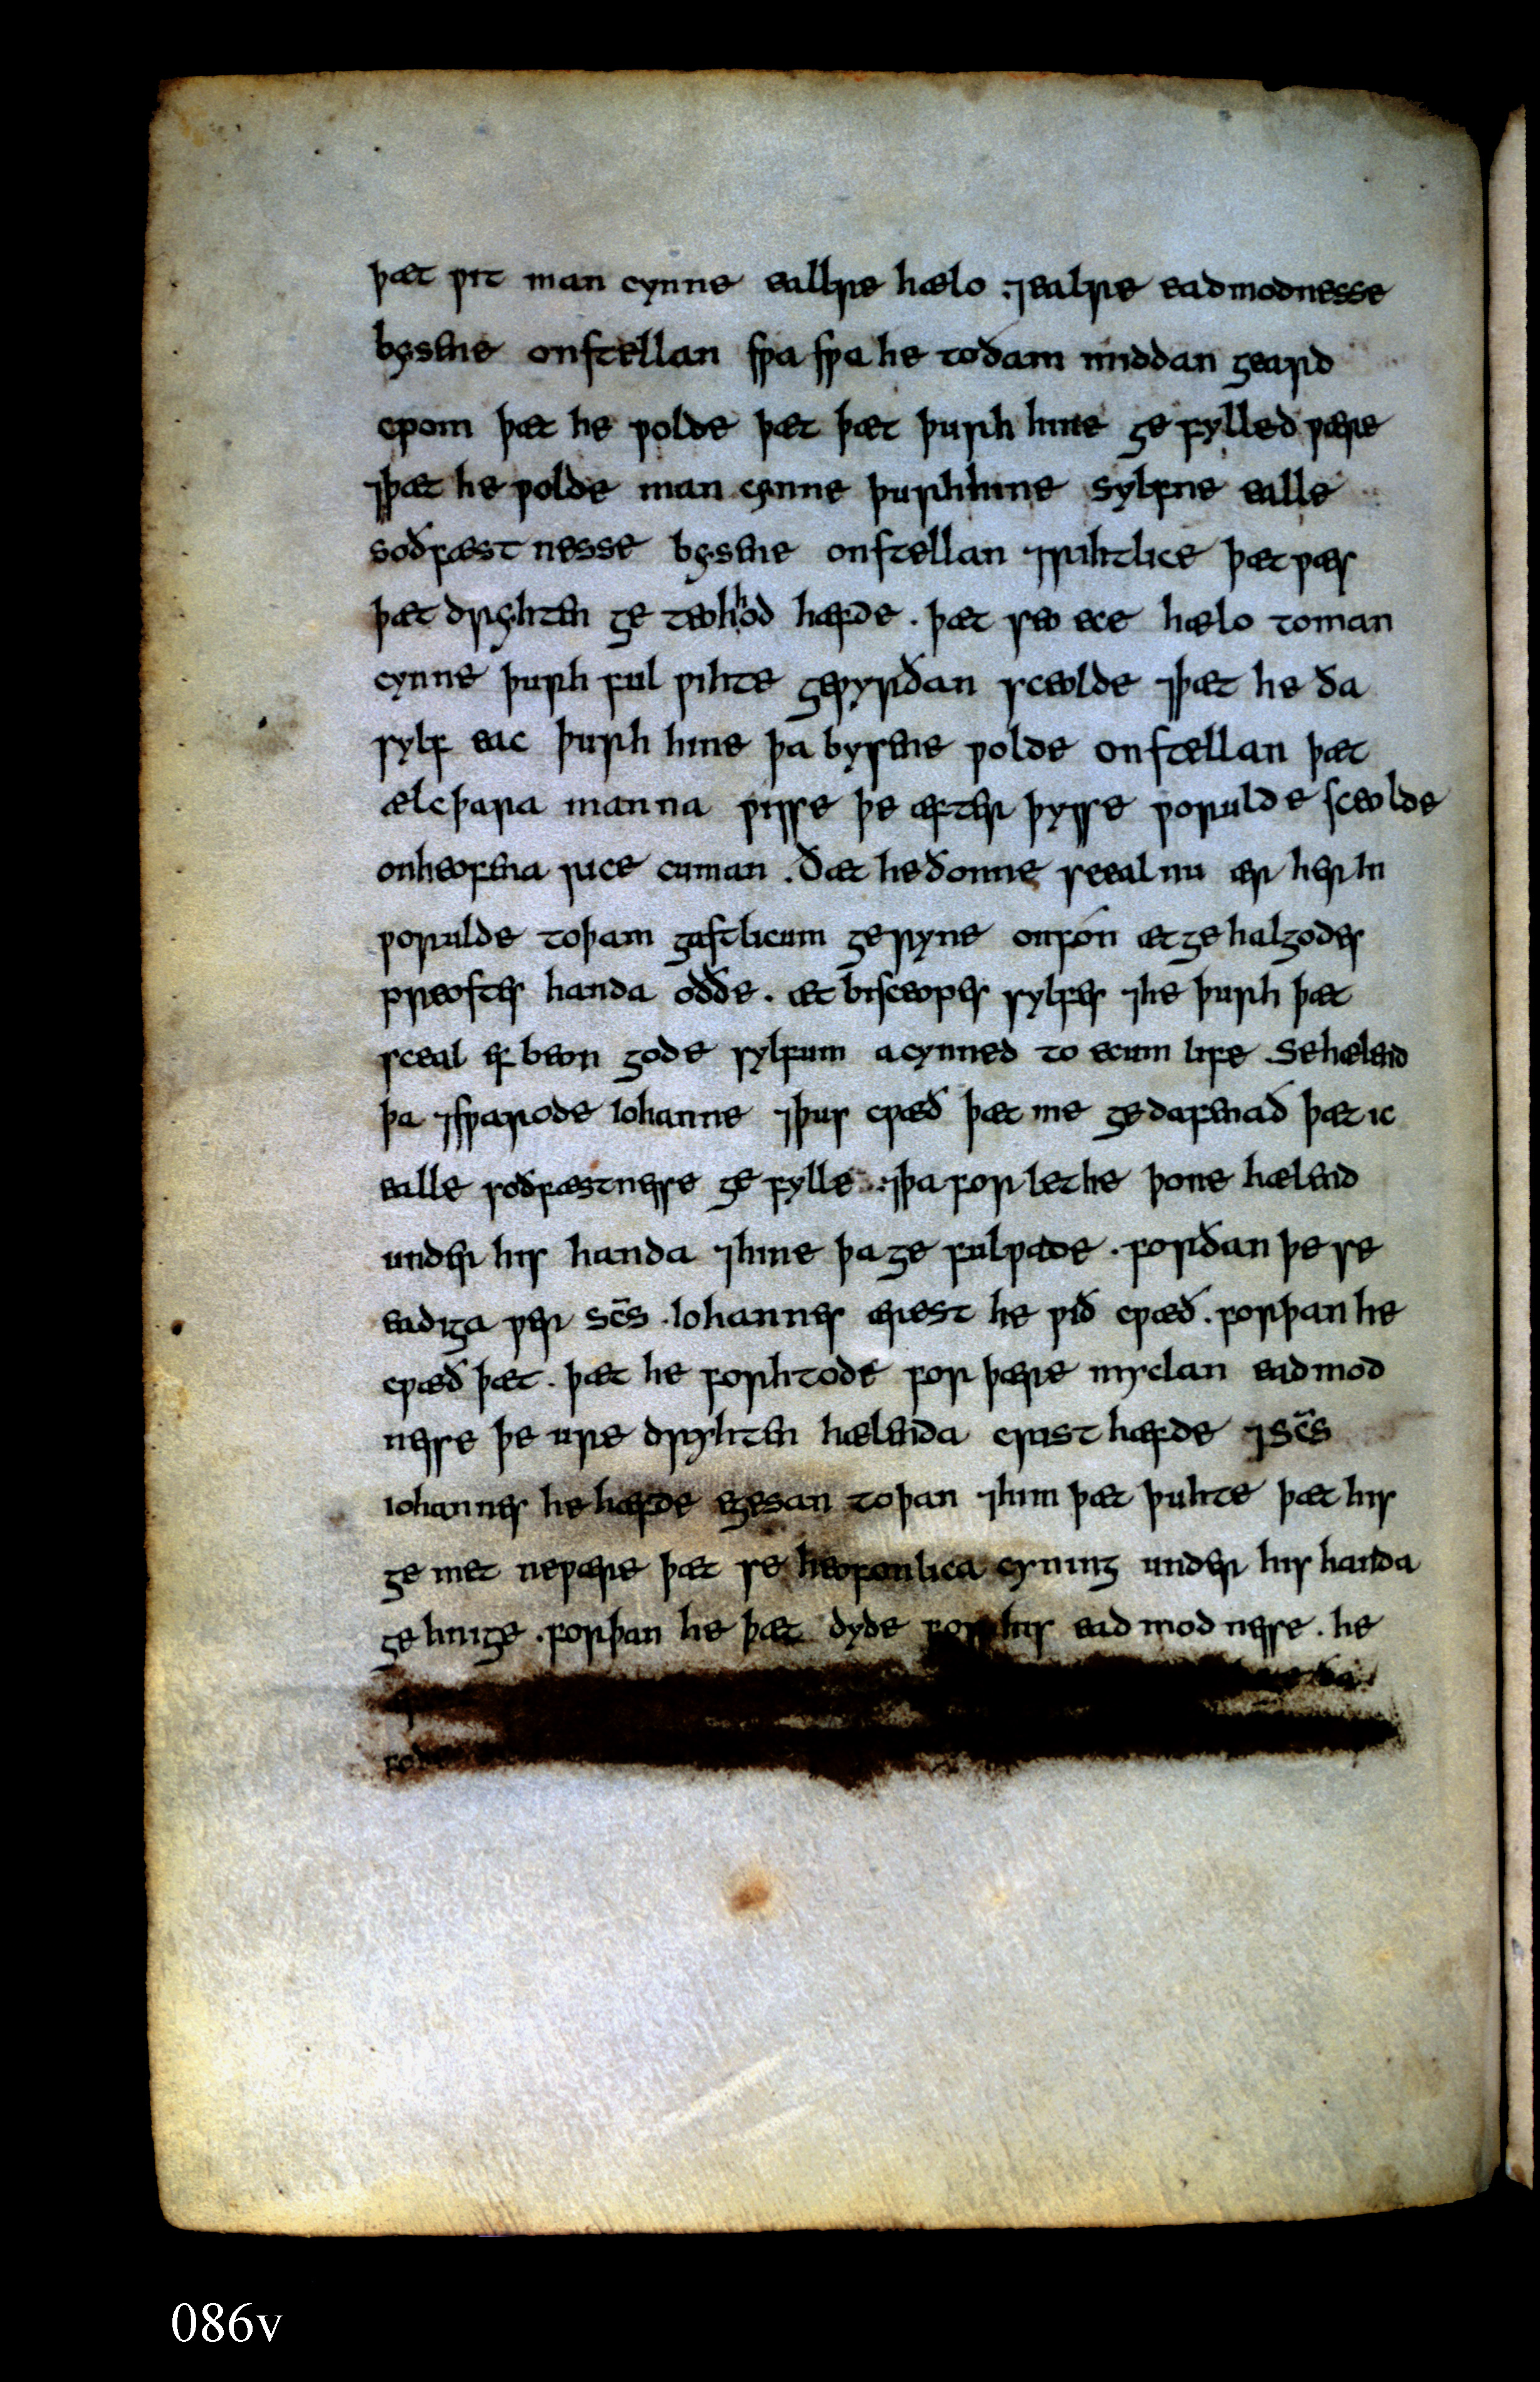 þæt ƿit man cynne eallre hælo ⁊ealre eadmodnesse
bysene onstellan sƿa sƿa he toðam middan geard
cƿom þæt he ƿolde þæt þæt þurh hine ge fylled ƿære
⁊þæt he ƿolde man cynne þurh hine sylfne ealle
soðfæst nesse bysene onstellan ⁊rihtlice þæt ƿæs
þæt dryhten ge teohhod hæfde . þæt seo ece hælo toman
cynne þurh ful ƿihte geƿyrðan sceolde ⁊þæt he ða
sylf eac þurh hine þa bysene ƿolde onstellan þæt
ælc þara manna ƿisse þe æfter þysse ƿorulde sceolde
onheofena rice cuman . ðæt he ðonne sceal nu ær her in
ƿorulde toþam gastlicum geryne onfón æt ge halgodes
preostes handa oððe . æt bisceopes sylfes ⁊he þurh þæt
sceal eft beon gode sylfum acynned to ecum life . Se hælend
þa ⁊sƿarode Iohanne ⁊þus cƿæð þæt me ge dafenað þæt ic
ealle soðfæstnesse ge fylle . ⁊þa forlethe þone hælend
under his handa ⁊hine þa ge fulƿade . forðan þe se
eadiga ƿer scs̄ . Iohannes ærest he ƿið cƿæð . forþan he
cƿæð þæt . þæt he forhtode for þære myclan eadmod
nesse þe ure dryhten hælenda crist hæfde ⁊ scs̄
Iohannes he hæfde egesan toþan ⁊him þæt þuhte þæt his
ge met neƿære þæt se heofonlica cyning under his handa
ge hnige . forþan he þæt dyde for his eadmod nesse . he